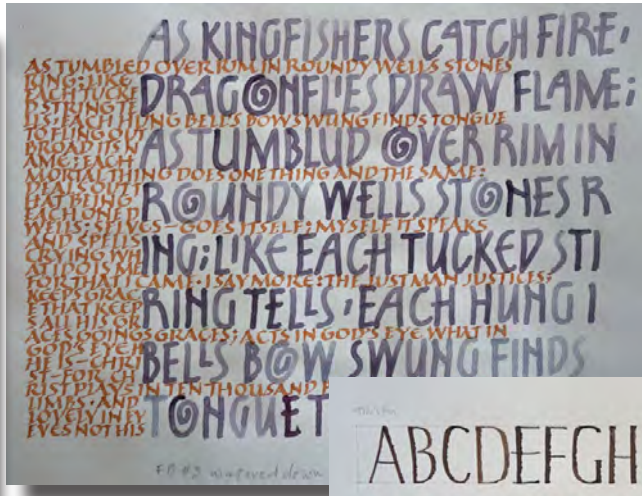 AS KINGFISHERS CATCH FIRE,
DRAGONFLIES DRAW FLAME;
AS TUMBLUD OVER RIM IN
ROUNDY WELLS STONES R
ING; LIKE EACH TUCKED STI
RING TELLS, EACH HUNG I
BELLS BOW SWUNG FINDS
TONGUE T
AS TUMBLED OVER RIM IN ROUNDY WELLS STONES
RING; LIKE
EACH TUCKE
D STRING TE
LLS; EACH HUNG BELL'S BOW SWUNG FINDS TONGUE
TO FLING OUT
BROAD ITS N
AME; EACH
MORTAL THING DOES ONE THING AND THE SAME:
DEALS OUT T
HAT BEING
EACH ONE D
WELLS; SELVES – GOES ITSELF; MYSELF IT SPEAKS
AND SPELLS
CRYING WH
AT I DO IS ME
FOR THAT I CAME. I SAY MORE: THE JUST MAN JUSTICES;
KEEPS GRAC
E THAT KEEP
S ALL HIS GR
ACES GOINGS GRACES; ACTS IN GOD'S EYE WHAT IN
GOD'S EYE
HE IS – CHRI
ST – FOR CH
RIST PLAYS IN TEN THOUSAND
LIMBS, AND
LOVELY IN EY
EYES NOT HIS
watered down
ABCDEFGH